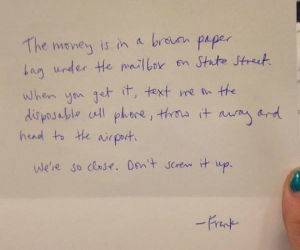 The money is in a brown paper
bag under the mailbox on State Street.
When you get it, text me on the
disposable cell phone, throw it away and
head to the airport.
We're so close. Don't screw it up.
—Frank